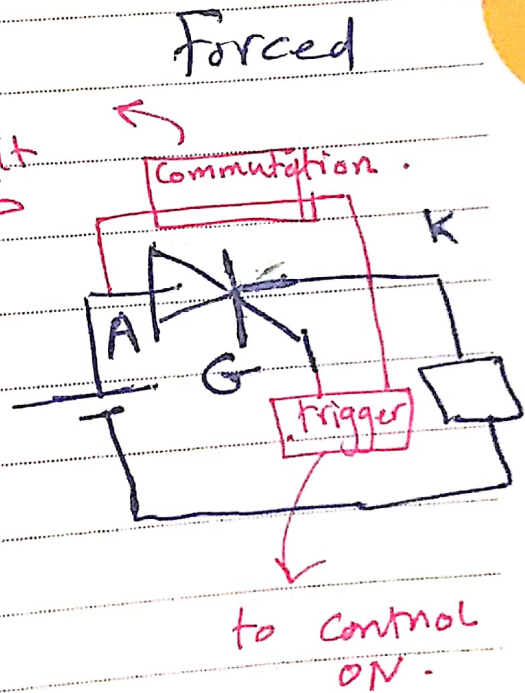 Forced
Commutation.
K
A
G
trigger
to control
ON.